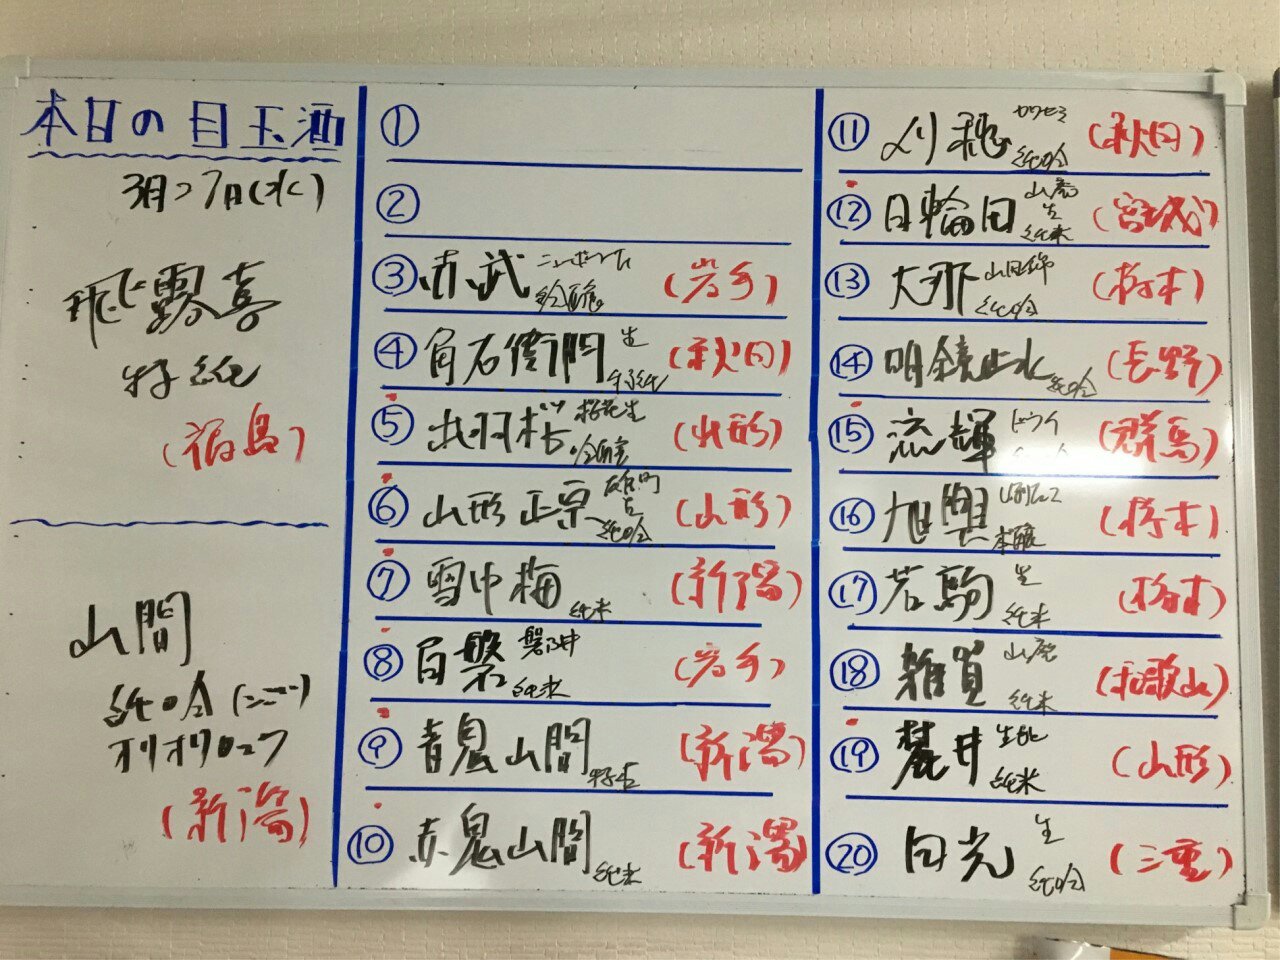 本日の目玉酒
3月27日(水)
飛露喜
特純
(福島)
山間
純吟
オリオリロック
(新潟)
①
②
③ 赤武 吟醸 (岩手)
④ 角右衛門 生 特純 (秋田)
⑤ 出羽桜 桜花生 吟醸 (山形)
⑥ 山形正宗 雄町 純吟 (山形)
⑦ 雪中梅 純米 (新潟)
⑧ 百磐 純米 (岩手)
⑨ 青鬼山間 (新潟)
⑩ 赤鬼山間 純米 (新潟)
⑪ 刈穂 カワセミ 純吟 (秋田)
⑫ 日輪田 山廃 生 純米 (宮城)
⑬ 大那 山田錦 純吟 (栃木)
⑭ 明鏡止水 純吟 (長野)
⑮ 流輝 (群馬)
⑯ 旭興 本醸 (栃木)
⑰ 若駒 生 純米 (栃木)
⑱ 雑賀 山廃 純米 (和歌山)
⑲ 麓井 生酛 純米 (山形)
⑳ 田光 生 純吟 (三重)